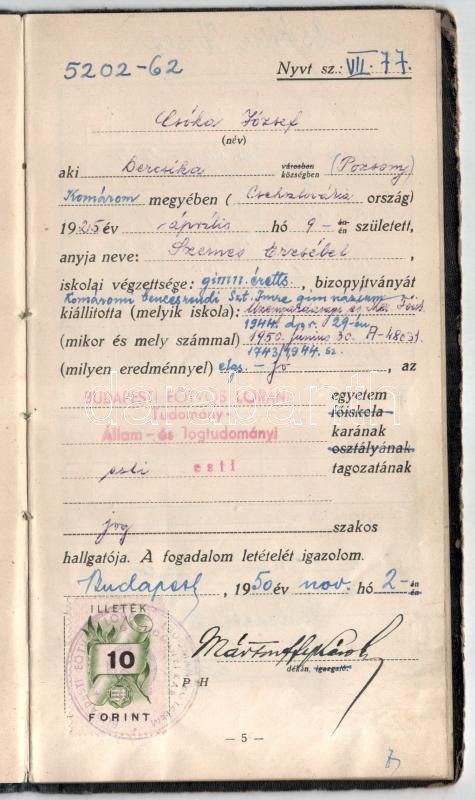 5202-62 Nyvt sz.: VII. 77.
Csóka József
(név)
aki Dercsika városban községben (Pozsony
Komárom megyében ( Csehszlovákia ország)
1925 év április hó 9-én született,
anyja neve: Szemes Erzsébet ,
iskolai végzettsége: gimn. éretts. , bizonyítványát
Komáromi Bencésrendi Szt. Imre gimnázium
kiállította (melyik iskola):
1944. ápr. 29-én
(mikor és mely számmal) 1950. junius 30. A-48031.
1743/1944. sz.
(milyen eredménnyel) elég. - jó , az
BUDAPESTI EÖTVÖS LORÁND egyetem
Tudomány- főiskola
Állam- és Jogtudományi karának
osztályának
esti esti tagozatának
jog szakos
hallgatója. A fogadalom letételét igazolom.
Budapest, 1950 év nov. hó 2-án
ILLETÉK
10
FORINT
P H
dékán, igazgató.
— 5 —
darabanth